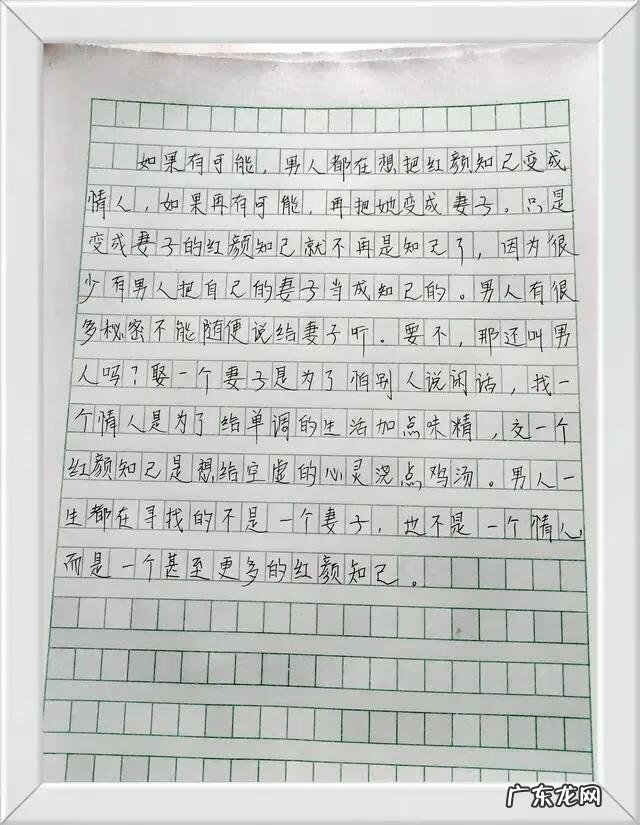 如果有可能，男人都在想把红颜知己变成
情人，如果再有可能，再把她变成妻子。只是
变成妻子的红颜知己就不再是知己了，因为很
少有男人把自己的妻子当成知己的。男人有很
多秘密不能随便说给妻子听。要不，那还叫男
人吗？娶一个妻子是为了怕别人说闲话，找一
个情人是为了给单调的生活加点味精，交一个
红颜知己是想给空虚的心灵浇点鸡汤。男人一
生都在寻找的不是一个妻子，也不是一个情人
而是一个甚至更多的红颜知己。
广东龙网